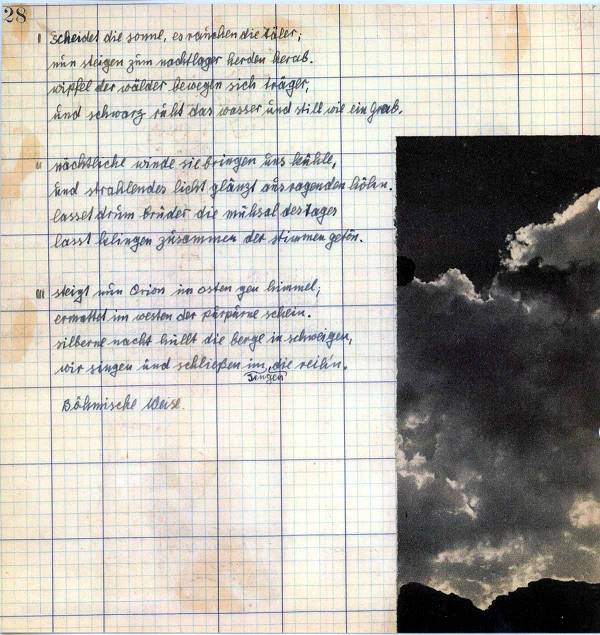 28
I scheidet die sonne, es rauchen die Täler;
nun steigen zum nachtlager herden herab.
wipfel der wälder bewegen sich träger,
und schwarz ruht das wasser und still wie ein grab.
II nächtliche winde sie bringen uns kühle,
und strahlendes licht glänzt aus ragenden höhn.
lasset drum brüder die mühsal des Tages
lasst klingen zusammen der stimmen getön.
III steigt nun Orion im osten gen himmel;
ermattet im westen der purpurne schein.
silberne nacht hüllt die berge in schweigen,
wir singen und schließen im die reih'n.
singen
Böhmische Weise.